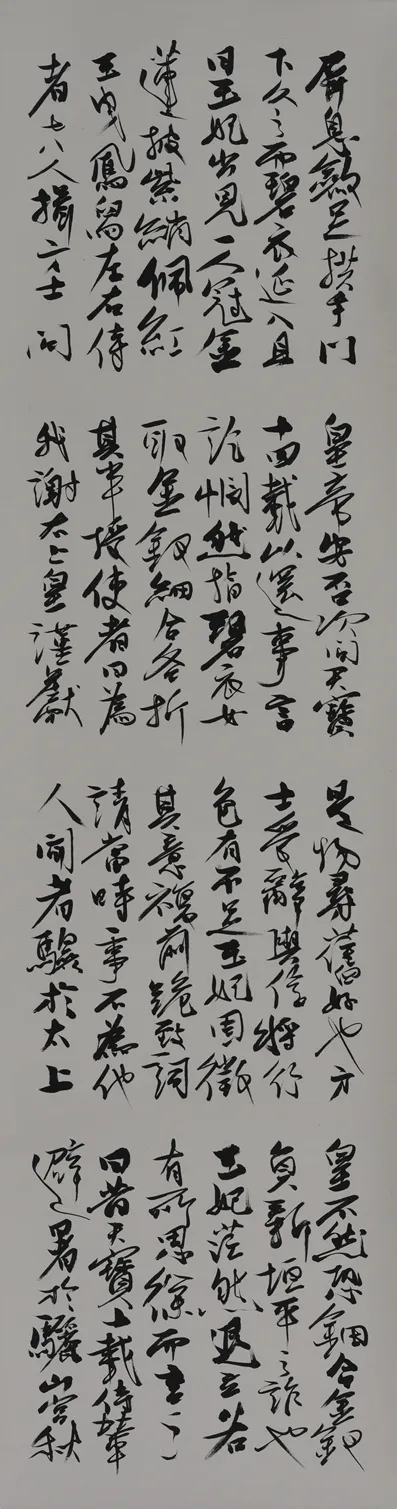 屏息斂足拱手門
下久之而碧衣延入且
曰玉妃出見一人冠金
蓮披紫綃佩紅
玉曳鳳舄左右侍
者七八人揖方士問
皇帝安否次問天寶
十四載以還事言
訖憫然指碧衣女
取金釵鈿合各折
其半授使者曰為
我謝太上皇謹獻
是物尋舊好也方
士受辭與信將行
色有不足玉妃固徵
其意復前跪致詞
請當時事不為他
人聞者驗於太上
皇不然恐鈿合金釵
負新垣平之詐也
玉妃茫然退立若
有所思徐而言
曰昔天寶十載侍輦
避暑於驪山宮秋